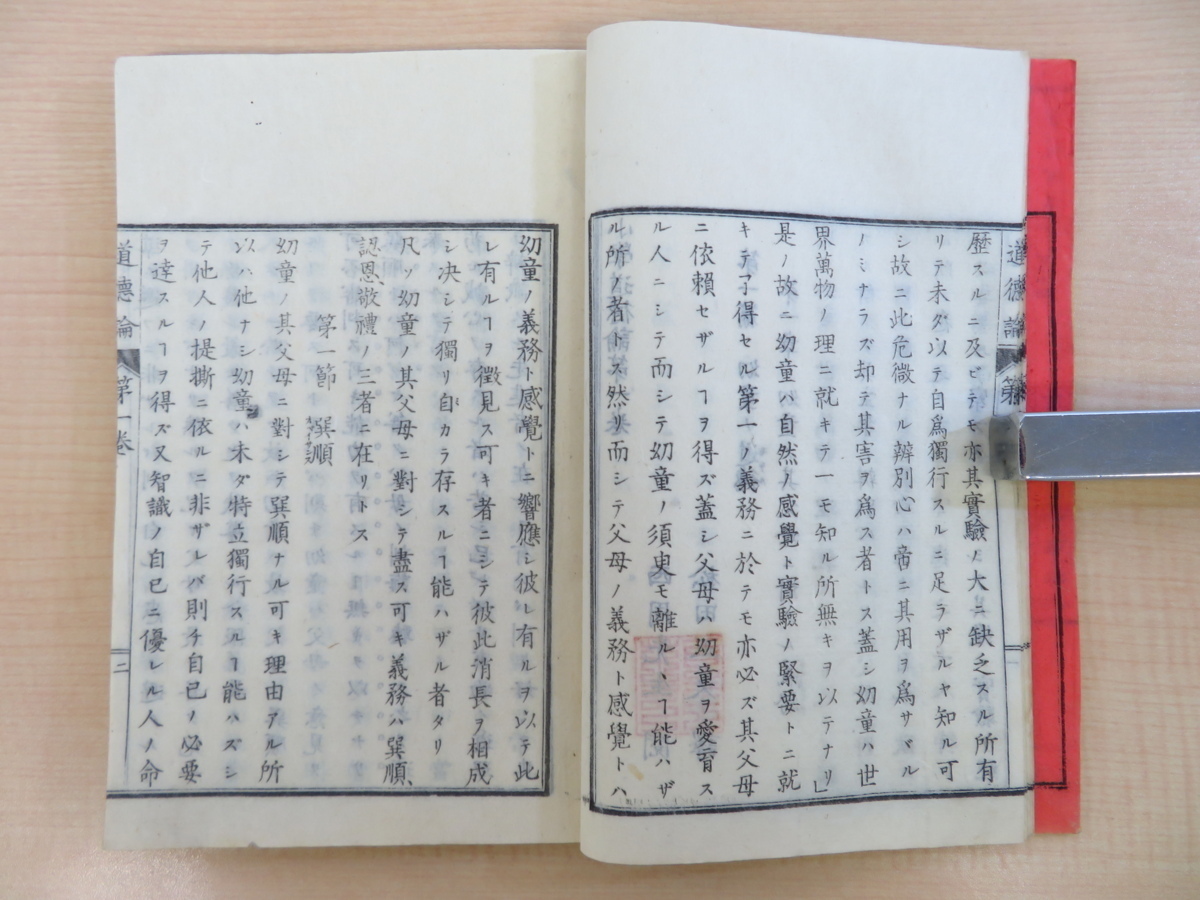 歷スルニ及ビテモ亦其實驗ノ大ニ缺乏スル所有
リテ未ダ以テ自爲獨行スルニ足ラザルヤ知ル可
シ故ニ此危微ナル辨別心ハ啻ニ其用ヲ爲サヾル
ノミナラズ却テ其害ヲ爲ス者トス蓋シ幼童ハ世
界萬物ノ理ニ就キテ一モ知ル所無キヲ以テナリ」
是ノ故ニ幼童ハ自然ノ感覺ト實驗ノ緊要トニ就
キテ了得セル第一ノ義務ニ於テモ亦必ズ其父母
ニ依賴セザルヿヲ得ズ蓋シ父母ハ幼童ヲ愛育ス
ル人ニシテ而シテ幼童ノ須臾モ離ルヽヿ能ハザ
ル所ノ者トス然リ而シテ父母ノ義務ト感覺トハ
道德論
第
幼童ノ義務ト感覺トニ響應シ彼レ有ルヲ以テ此
レ有ルヿヲ徵見ス可キ者ニシテ彼此消長ヲ相成
シ決シテ獨リ自カラ存スルヿ能ハザル者タリ
凡ソ幼童ノ其父母ニ對シテ盡ス可キ義務ハ巽順、
認恩、敬禮ノ三者ニ在リトス
第一節 巽順
幼童ノ其父母ニ對シテ巽順ナル可キ理由アル所
以ハ他ナシ幼童ハ未ダ特立獨行スルヿ能ハズシ
テ他人ノ提撕ニ依ルニ非ザレバ則チ自己ノ必要
ヲ達スルヿヲ得ズ又智識ノ自己ニ優レル人ノ命
道德論
第一卷
二